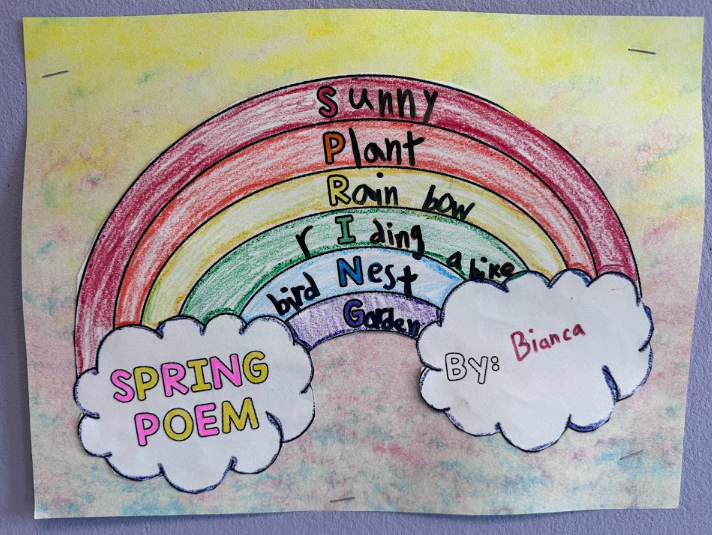 Sunny
Plant
Rain bow
rIding a bike
bird Nest
Garden
SPRING
POEM
BY: Bianca